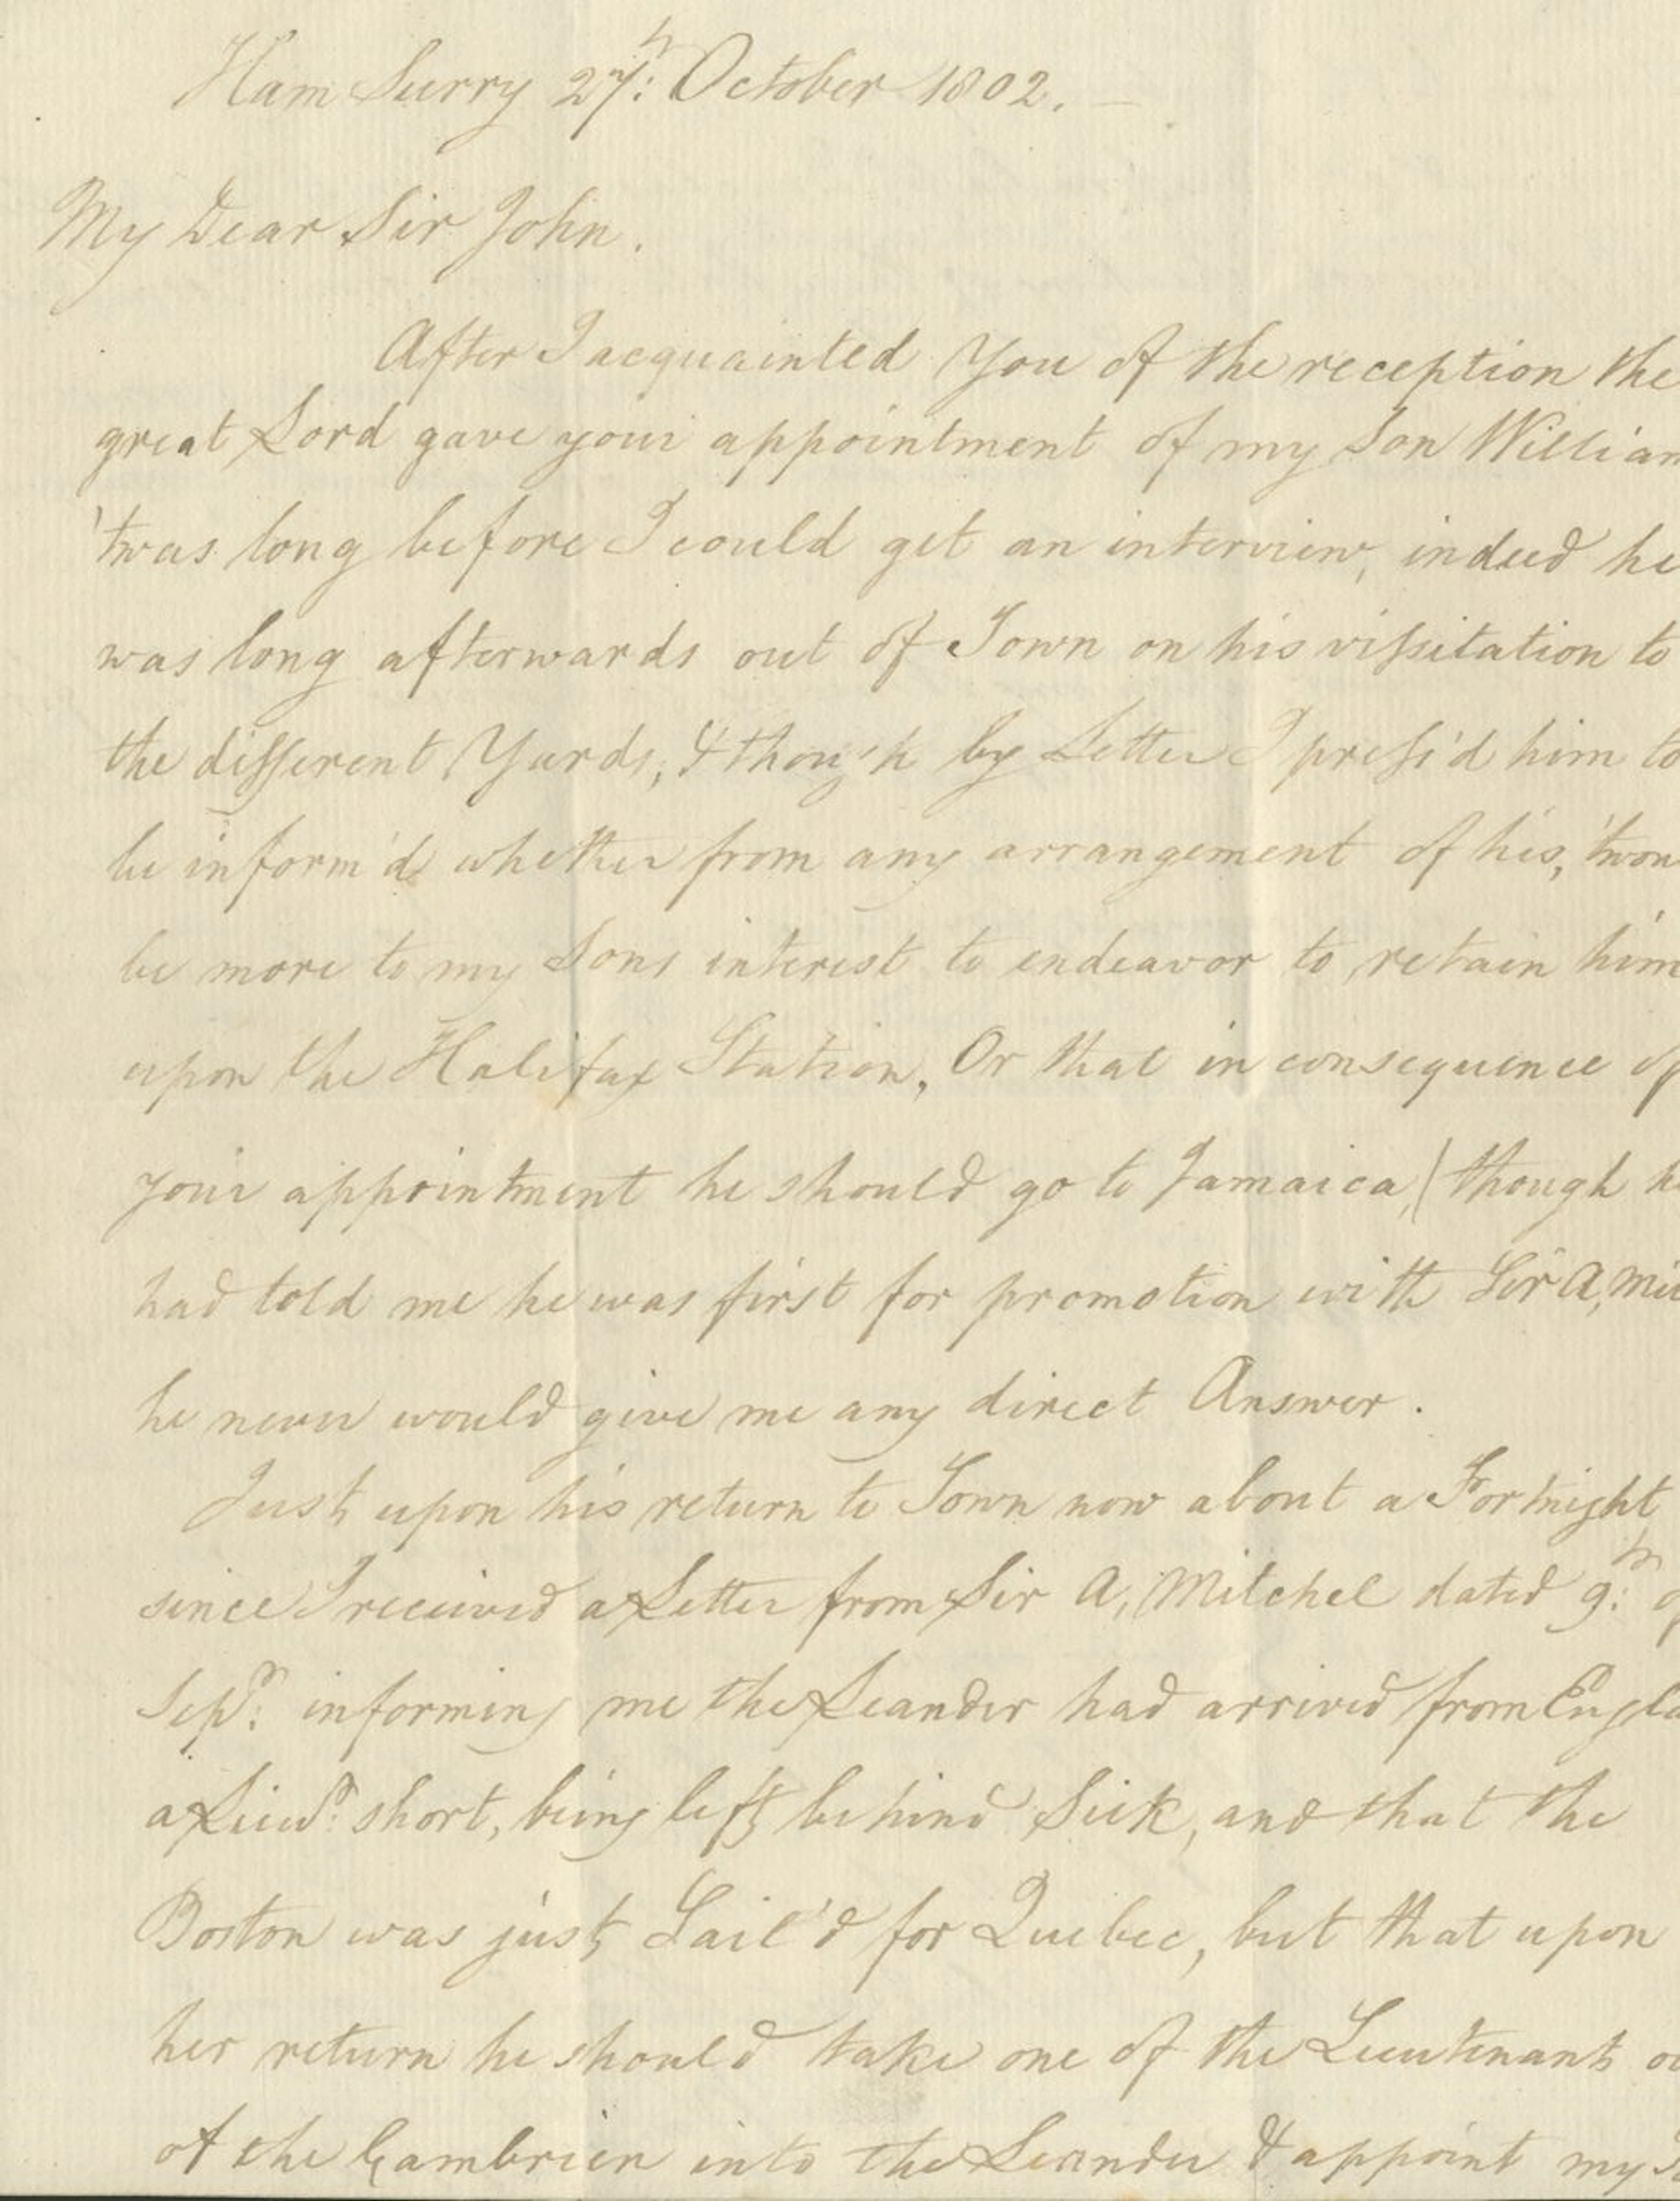 Ham Surry 27th: October 1802. —
My Dear Sir John.
After I acquainted You of the reception the
great Lord gave your appointment of my Son William
'twas long before I could get an interview, indeed he
was long afterwards out of Town on his vissitation to
the different Yards, & though by Letter I press'd him to
be inform'd whether from any arrangement of his, 'twou
be more to my Sons interest to endeavor to retain him
upon the Halifax Station, Or that in consequence of
your appointment he should go to Jamaica, (though he
had told me he was first for promotion with Sir A, Mit
he never would give me any direct Answer.
Just upon his return to Town now about a Fortnight
since I received a Letter from Sir A, Mitchel dated 9:th of
Sepr: informing me the Leander had arrived from Engla
a Lieut: short, being left behind Sick, and that the
Boston was just Sail'd for Quebec, but that upon
her return he should take one of the Lieutenants ou
of the Cambrien into the Leander & appoint my S